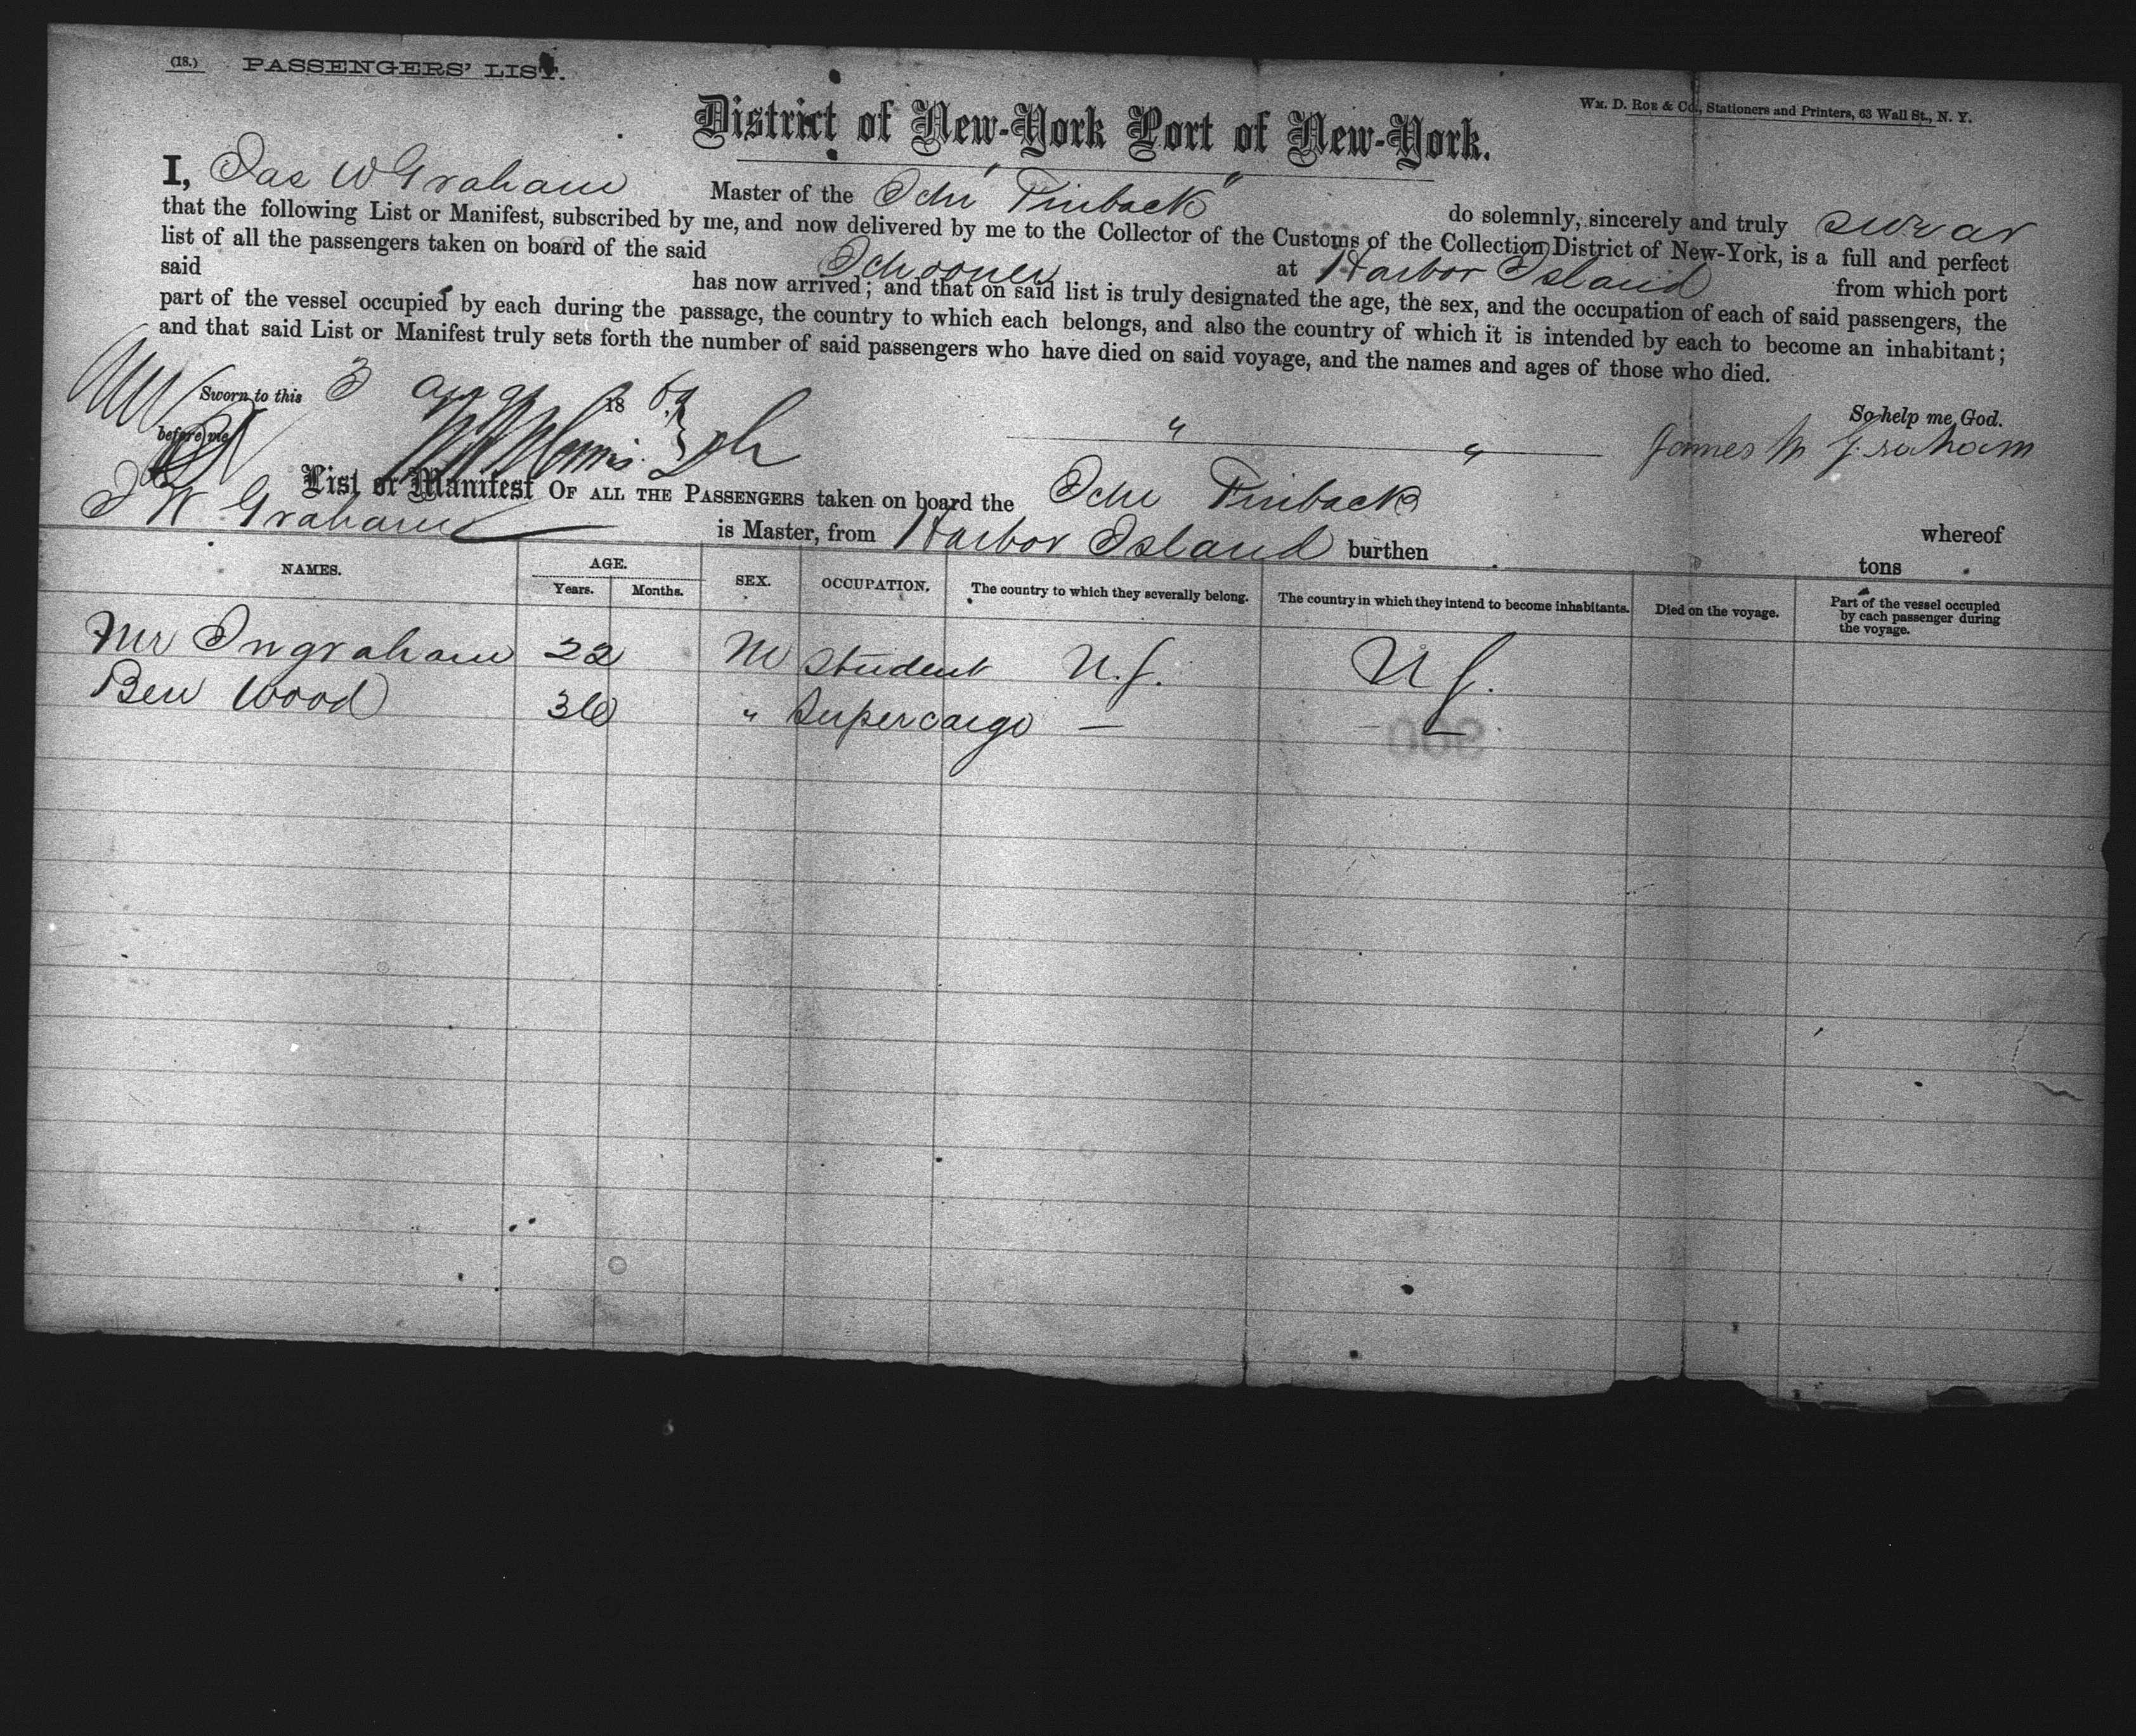 (18.) PASSENGERS' LIST.
Wm. D. Roe & Co., Stationers and Printers, 63 Wall St., N. Y.
District of New-York Port of New-York.
I, Jas W Graham Master of the Schr "Finback" do solemnly, sincerely and truly swear
that the following List or Manifest, subscribed by me, and now delivered by me to the Collector of the Customs of the Collection District of New-York, is a full and perfect
list of all the passengers taken on board of the said Schooner at Harbor Island from which port
said has now arrived; and that on said list is truly designated the age, the sex, and the occupation of each of said passengers, the
part of the vessel occupied by each during the passage, the country to which each belongs, and also the country of which it is intended by each to become an inhabitant;
and that said List or Manifest truly sets forth the number of said passengers who have died on said voyage, and the names and ages of those who died.
Sworn to this 3 1869 So help me God.
before me James W Graham
List or Manifest OF ALL THE PASSENGERS taken on board the Schr Finback whereof
J W Graham is Master, from Harbor Island burthen tons
NAMES. AGE. SEX. OCCUPATION. The country to which they severally belong. The country in which they intend to become inhabitants. Died on the voyage. Part of the vessel occupied by each passenger during the voyage.
Years. Months.
Mr Ingraham 22 M Student U.S. U S.
Ben Wood 36 " Supercargo —